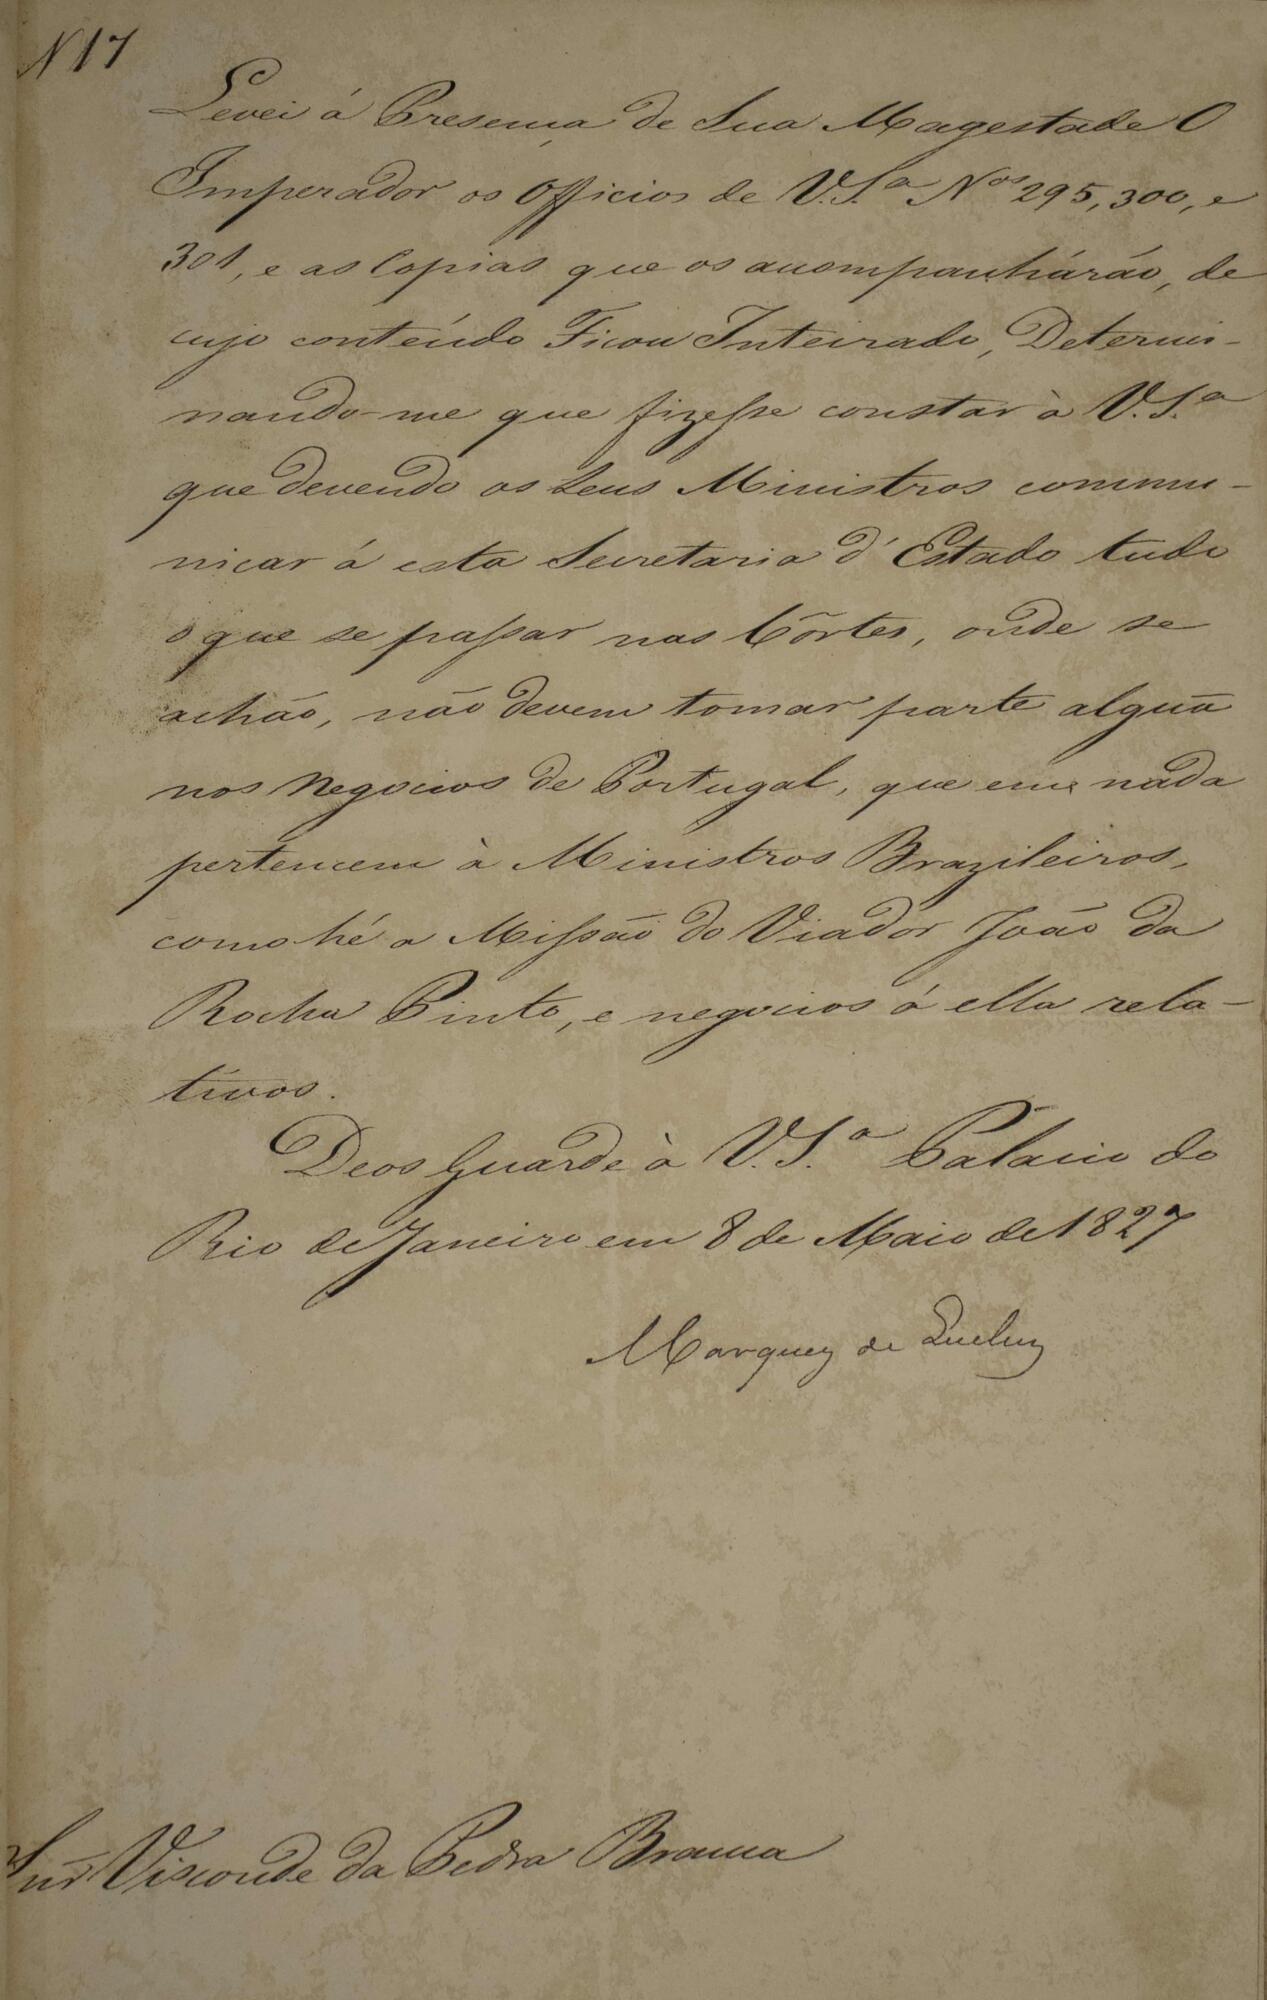 N 17
Levei á Presença de Sua Magestade O
Imperador os Officios de V.S.ª Nos 295, 300, e
301, e as Copias que os acompanhárão, de
cujo conteúdo Ficou Inteirado, Determi-
nando-me que fizesse constar à V.S.ª
que devendo os Seus Ministros commu-
nicar á esta Secretaria d'Estado tudo
o que se passar nas Côrtes, onde se
achão, não devem tomar parte algũa
nos Negocios de Portugal, que em nada
pertencem à Ministros Brazileiros,
como hé a Missão do Viador João da
Rocha Pinto, e negocios á ella rela-
tivos.
Deos Guarde à V.S.ª Palacio do
Rio de Janeiro em 8 de Maio de 1827
Marquez de Queluz
Snr Visconde da Pedra Branca